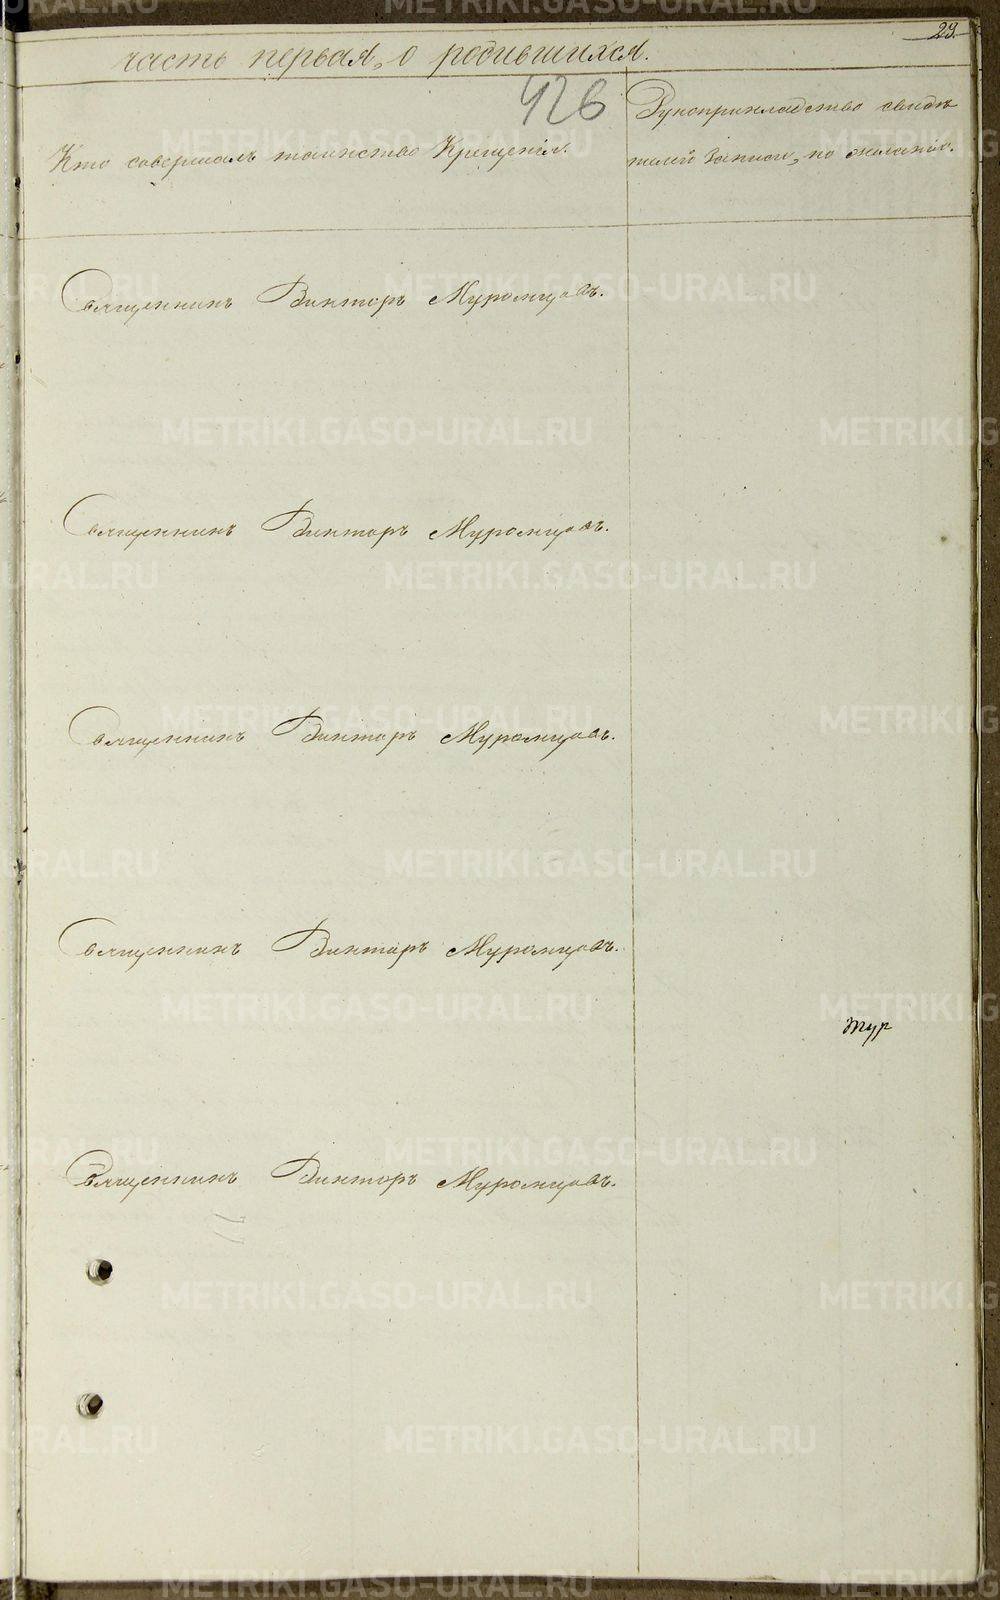 29.
часть первая, о родившихся.
426
Кто совершалъ таинство Крещенія.
Рукоприкладство свидѣ
телей записи, по желанію.
Священникъ Викторъ Муромцовъ.
Священникъ Викторъ Муромцовъ.
Священникъ Викторъ Муромцовъ.
Священникъ Викторъ Муромцовъ.
тур
Священникъ Викторъ Муромцовъ.
METRIKI.GASO-URAL.RU